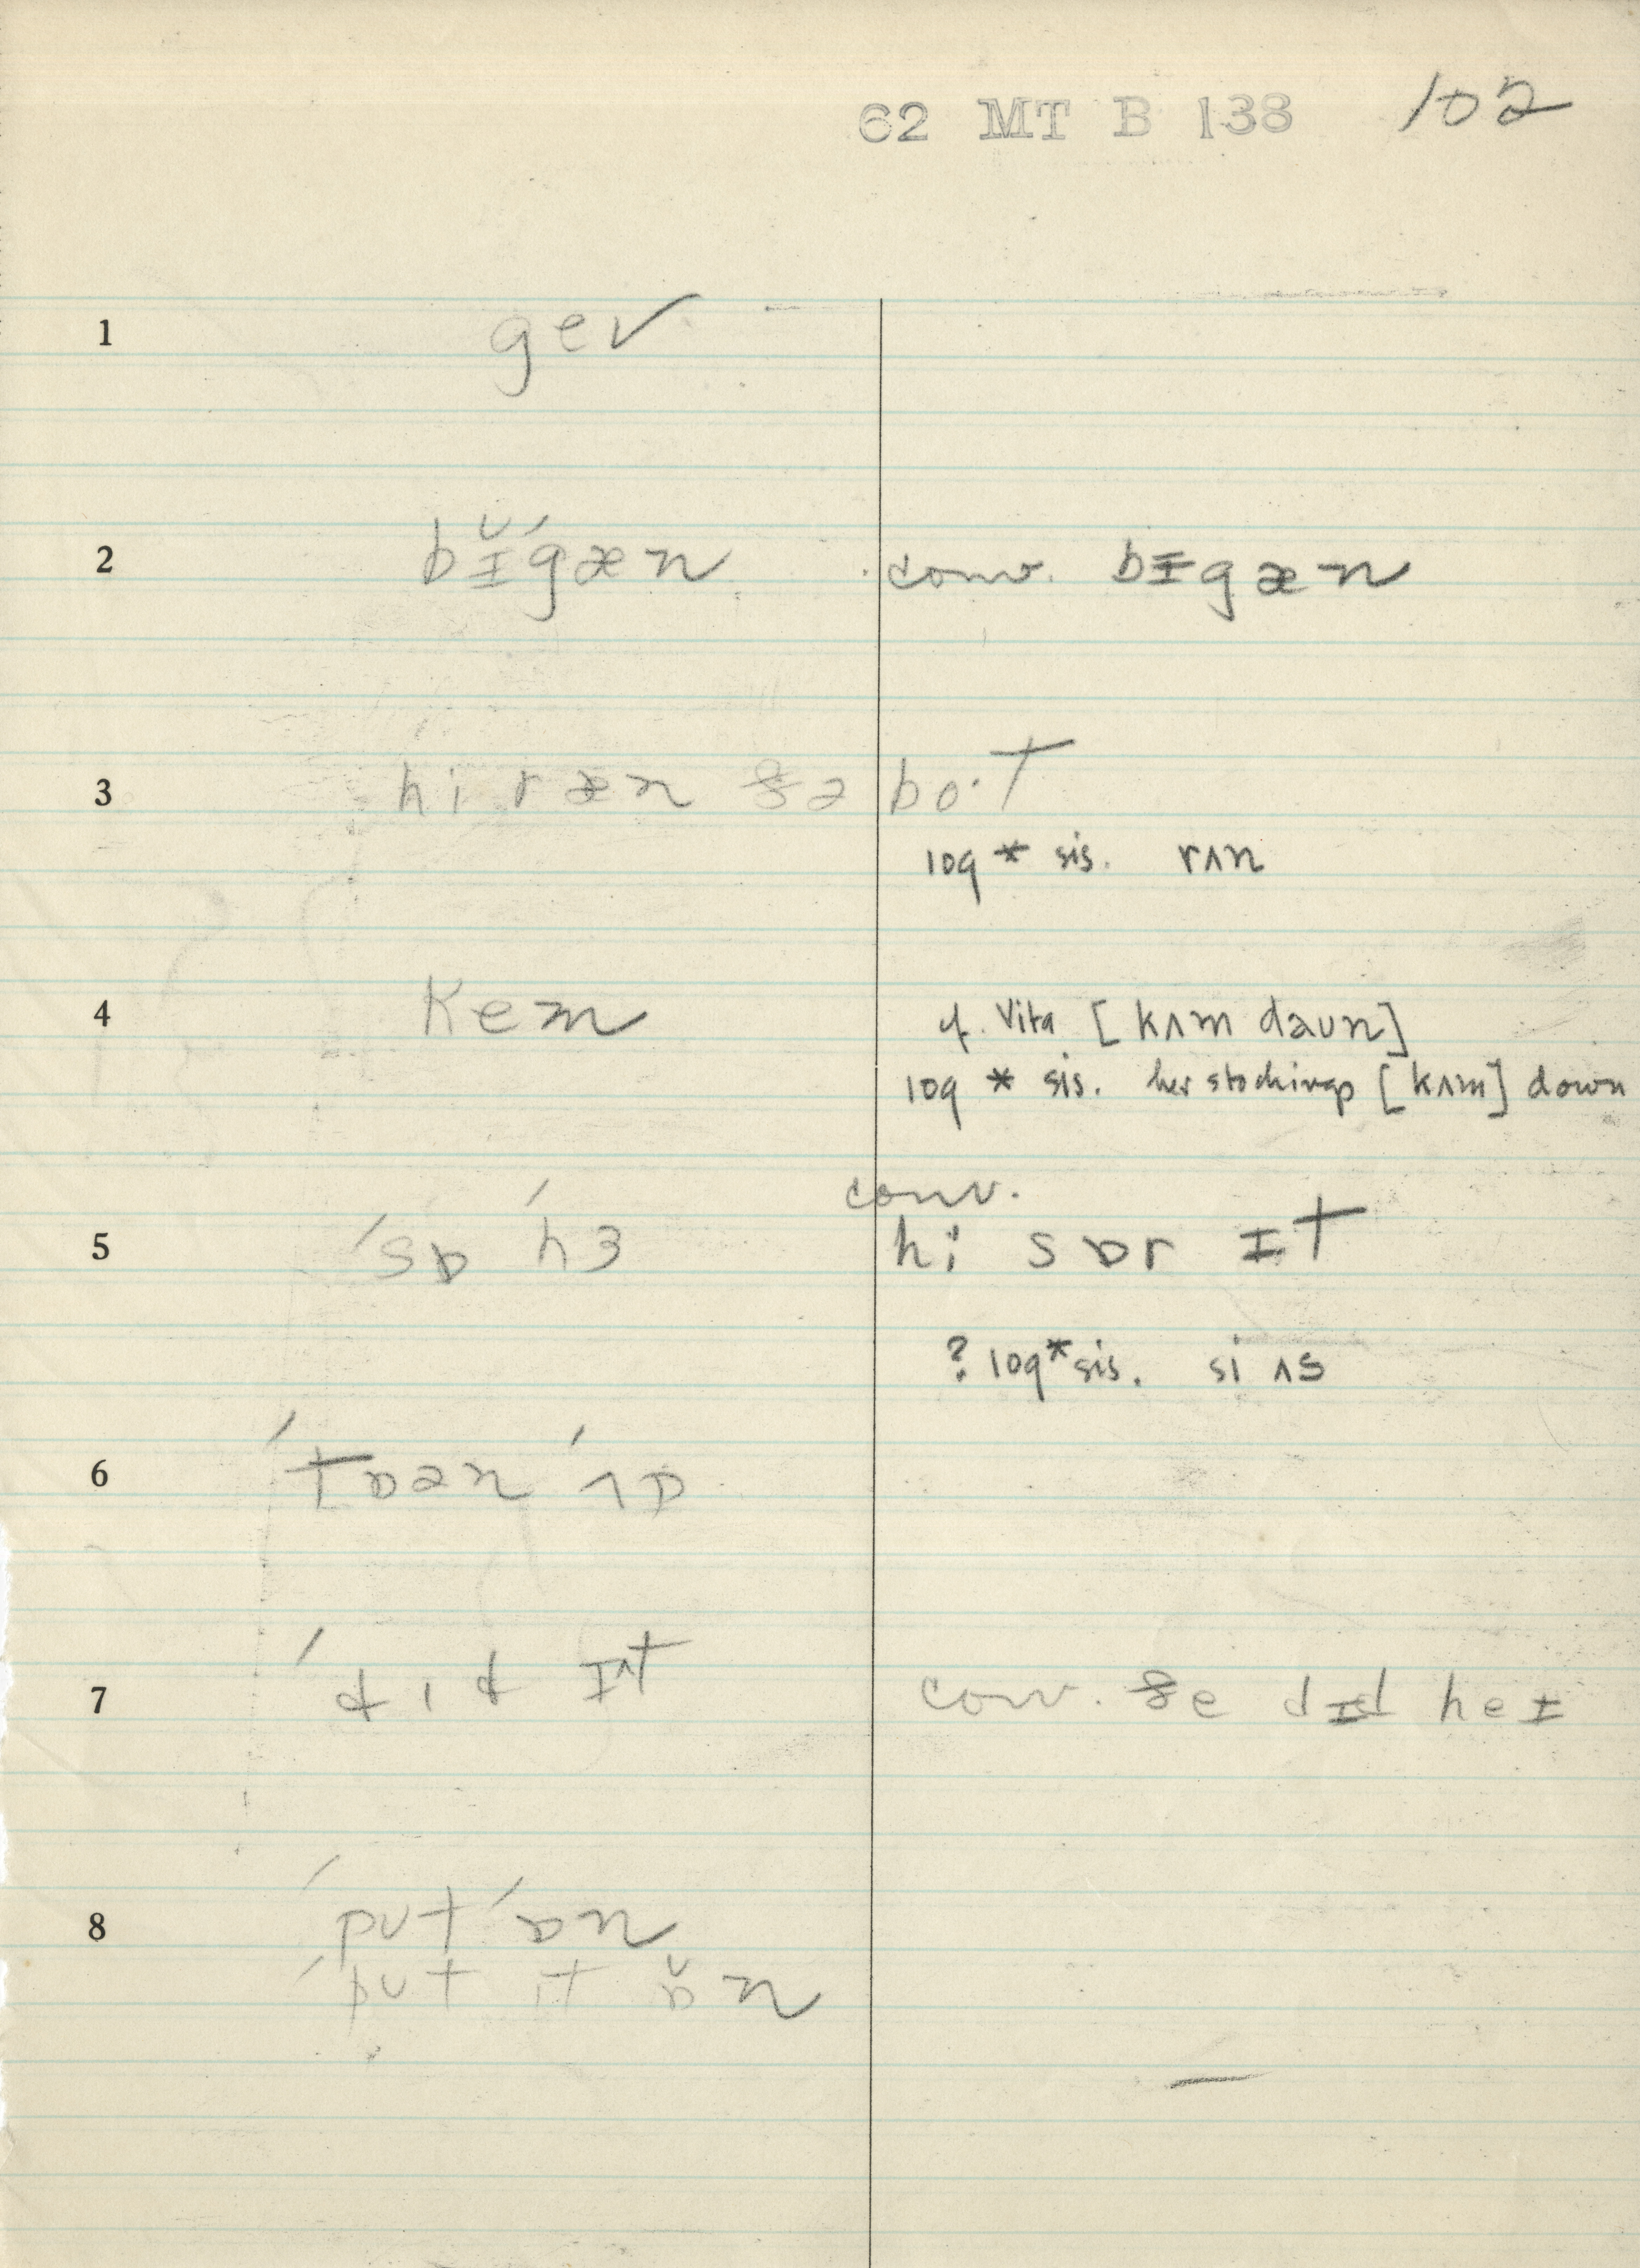 62 MT B 138 102
1 gev
2 bɪ̆ˊgæn conv. bɪgæn
3 hi ræn ðə bo·t
log * sis. rʌn
4 kem cf. Vita [kʌm daun]
log * sis. her stockings [kʌm] down
conv.
5 ˊsɒ ˊhɜ hi sɒr ɪt
? log * sis. si ʌs
6 ˊtɒən ˊʌp
7 ˊdɪd ɪt conv. ðe dɪd heɪ
8 ˊpʊt ˊɒn
ˊpʊt ɪt ɒ̆n